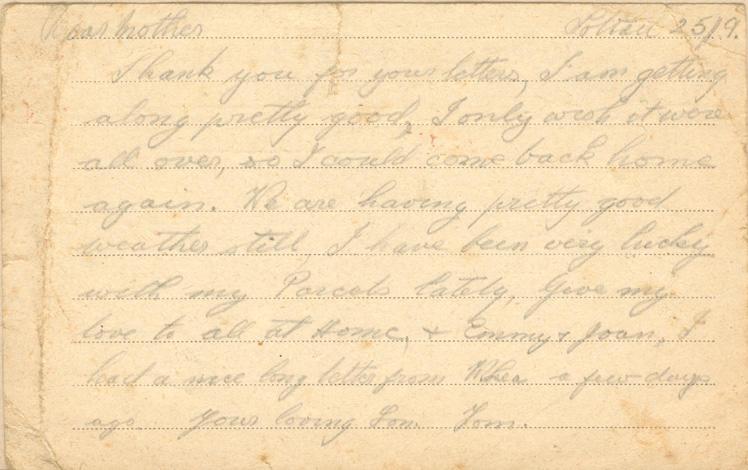 Dear Mother Soltau 25/9.
Thank you for your letters, I am getting
along pretty good, I only wish it were
all over, so I could come back home
again. We are having pretty good
weather still, I have been very lucky
with my Parcels lately, Give my
love to all at Home, + Emmy + Joan, I
had a nice long letter from a few days
ago Your loving Son. Tom.